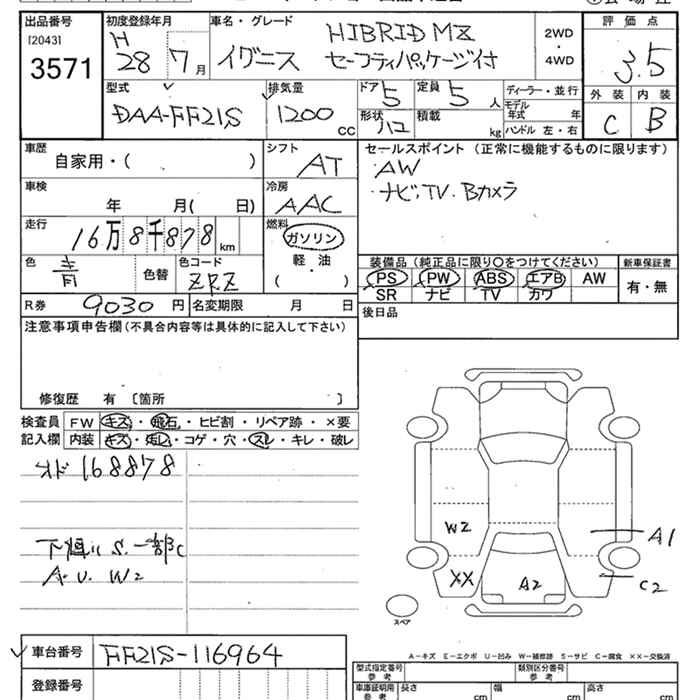 出品番号 初度登録年月 車名・グレード 評価点
[2043]
3571
H 28 7月
イグニス
HIBRID MZ
セーフティパッケージ付
2WD
・
4WD
3.5
外装 内装
C B
型式 排気量 ドア 定員 ディーラー・並行
DAA-FF21S 1200 CC 5 5 人
モデル年式 年
形状 ハコ 積載 kg ハンドル 左・右
車歴 シフト セールスポイント (正常に機能するものに限ります)
自家用・( ) AT
・AW
・ナビ、TV、Bカメラ
車検 冷房
年 月( 日) AAC
走行 燃料
16万8千878 km
ガソリン
軽・油
( )
色 色コード
青 色替 ZRZ
装備品 (純正品に限り○をつけてください) 新車保証書
PS PW ABS エアB AW
SR ナビ TV カワ
有・無
R券 9030 円 名変期限 月 日
後日品
注意事項申告欄 (不具合内容等は具体的に記入して下さい)
修復歴 有 〔箇所 〕
検査員 FW キズ・飛石・ヒビ割・リペア跡・×要
記入欄 内装 キズ・汚レ・コゲ・穴・スレ・キレ・破レ
オド 168878
S. 一部C
A.U.W2
W2
XX
A2
A1
C2
スペア
A-キズ E-エクボ U-凹み W-補修跡 S-サビ C-腐食 XX-交換済
車台番号 FF21S-116964
登録番号
型式指定番号 参考 類別区分番号 参考
車庫証明用 参考 長さ cm 幅 cm 高さ cm